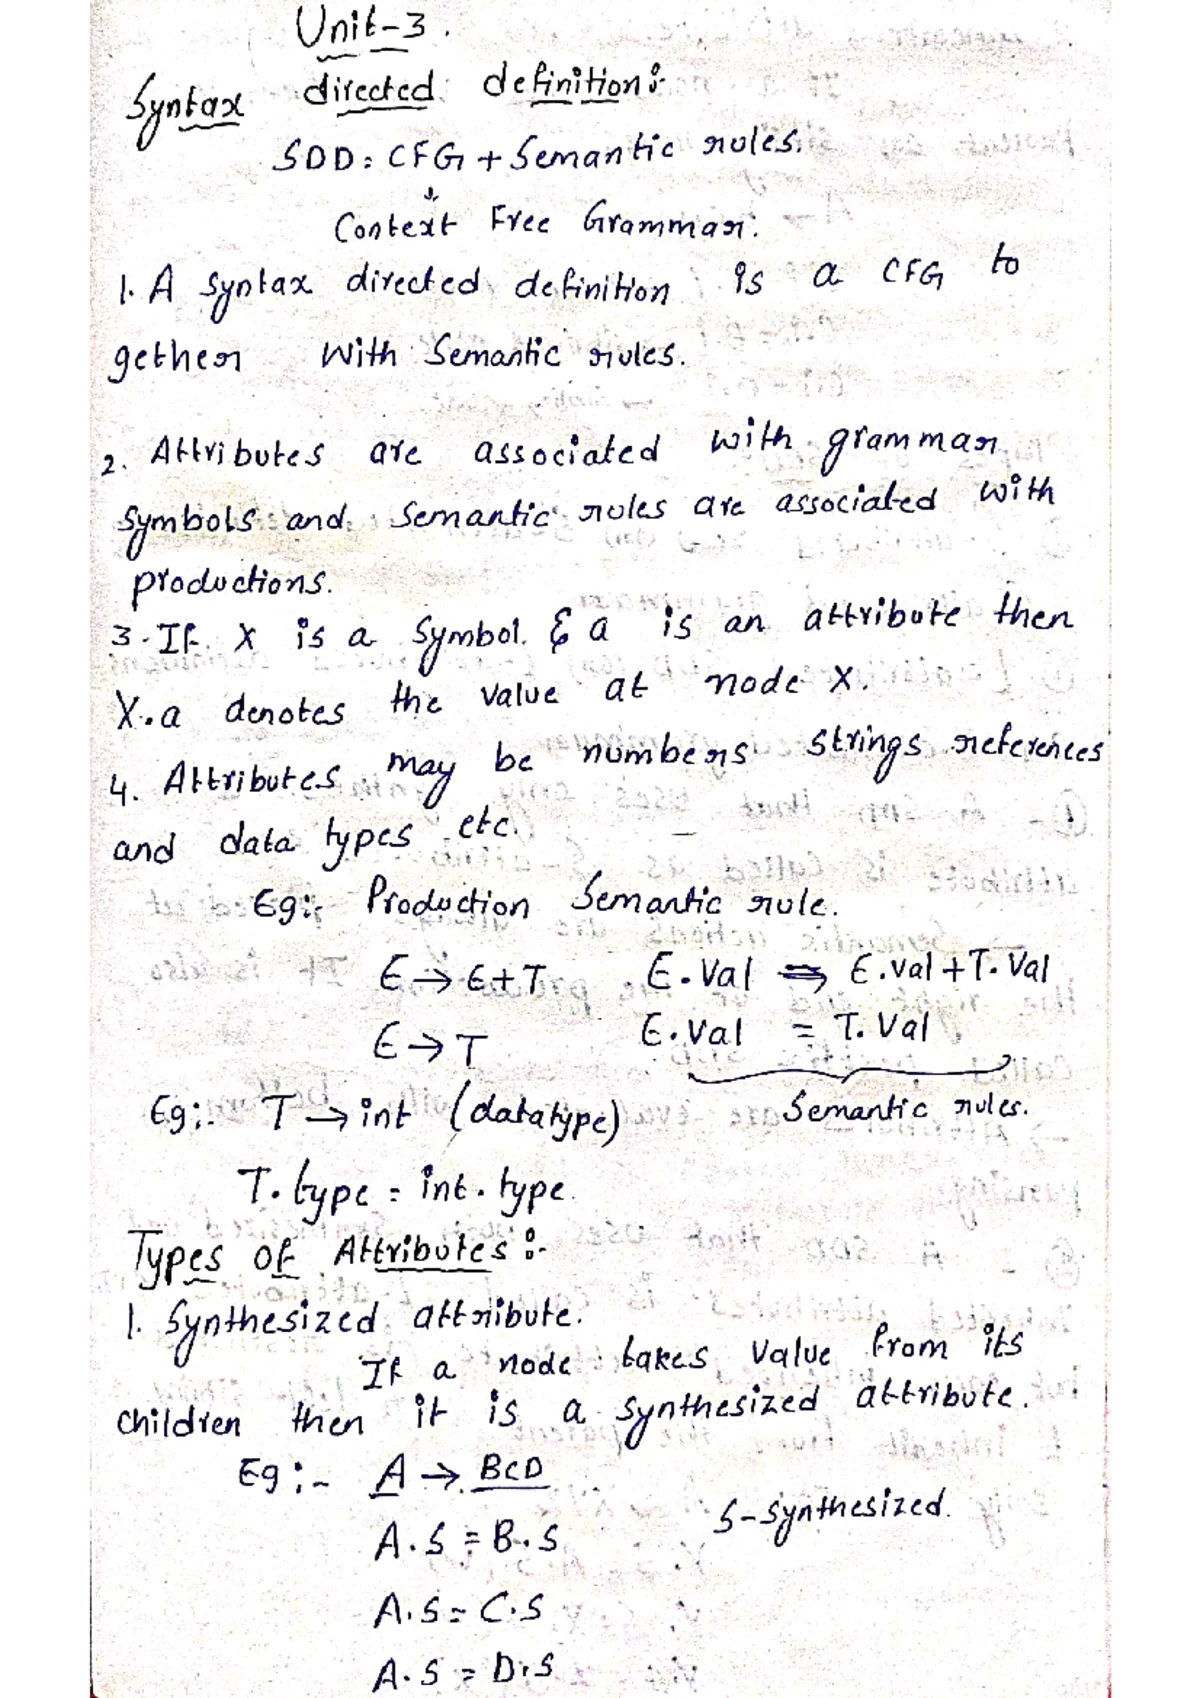 Unit-3.
Syntax directed definition:-
SDD: CFG + Semantic rules.
↓
Context Free Grammar.
1. A syntax directed definition is a CFG to
gether with Semantic rules.
2. Attributes are associated with grammar
symbols and semantic rules are associated with
productions.
3. If X is a Symbol. & a is an attribute then
X.a denotes the value at node X.
4. Attributes may be numbers strings references
and data types etc.
Eg:- Production Semantic rule.
E → E+T E.Val ⇒ E.val + T.Val
E → T E.Val = T.Val
Semantic rules.
Eg:- T → int (datatype)
T.type = int.type.
Types of Attributes :-
1. Synthesized attribute.
If a node takes value from its
children then it is a synthesized attribute.
Eg:- A → BCD
S-synthesized.
A.S = B.S
A.S = C.S
A.S = D.S